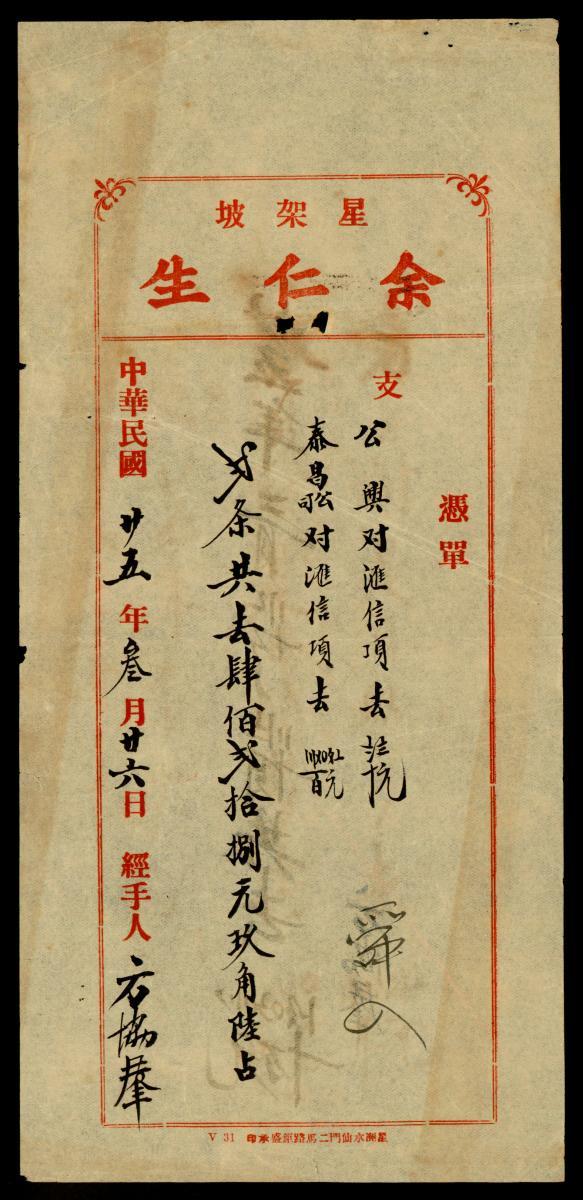 星架坡
余仁生
憑單
支
公興对滙信項去
泰昌公司对滙信項去
弍条共去肆佰弍拾捌元玖角陸占
中華民國廿五年叁月廿六日 經手人
星洲水仙門二馬路鉅盛承印 V 31